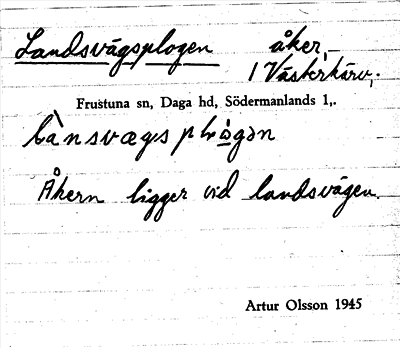 Landsvägsplogen åker,
1 Västerkärv,.
Frustuna sn, Daga hd, Södermanlands l,.
Åkern ligger vid landsvägen.
Artur Olsson 1945